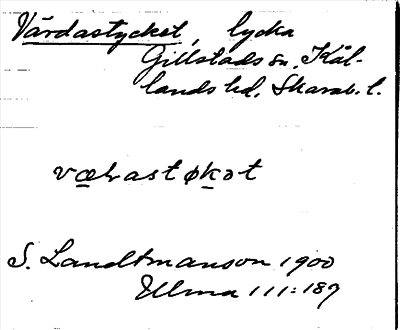 Värdastycket, lycka
Gillstads sn. Kål-
lands hd. Skarab. l.
S. Landtmanson 1900
Ulma 111:187